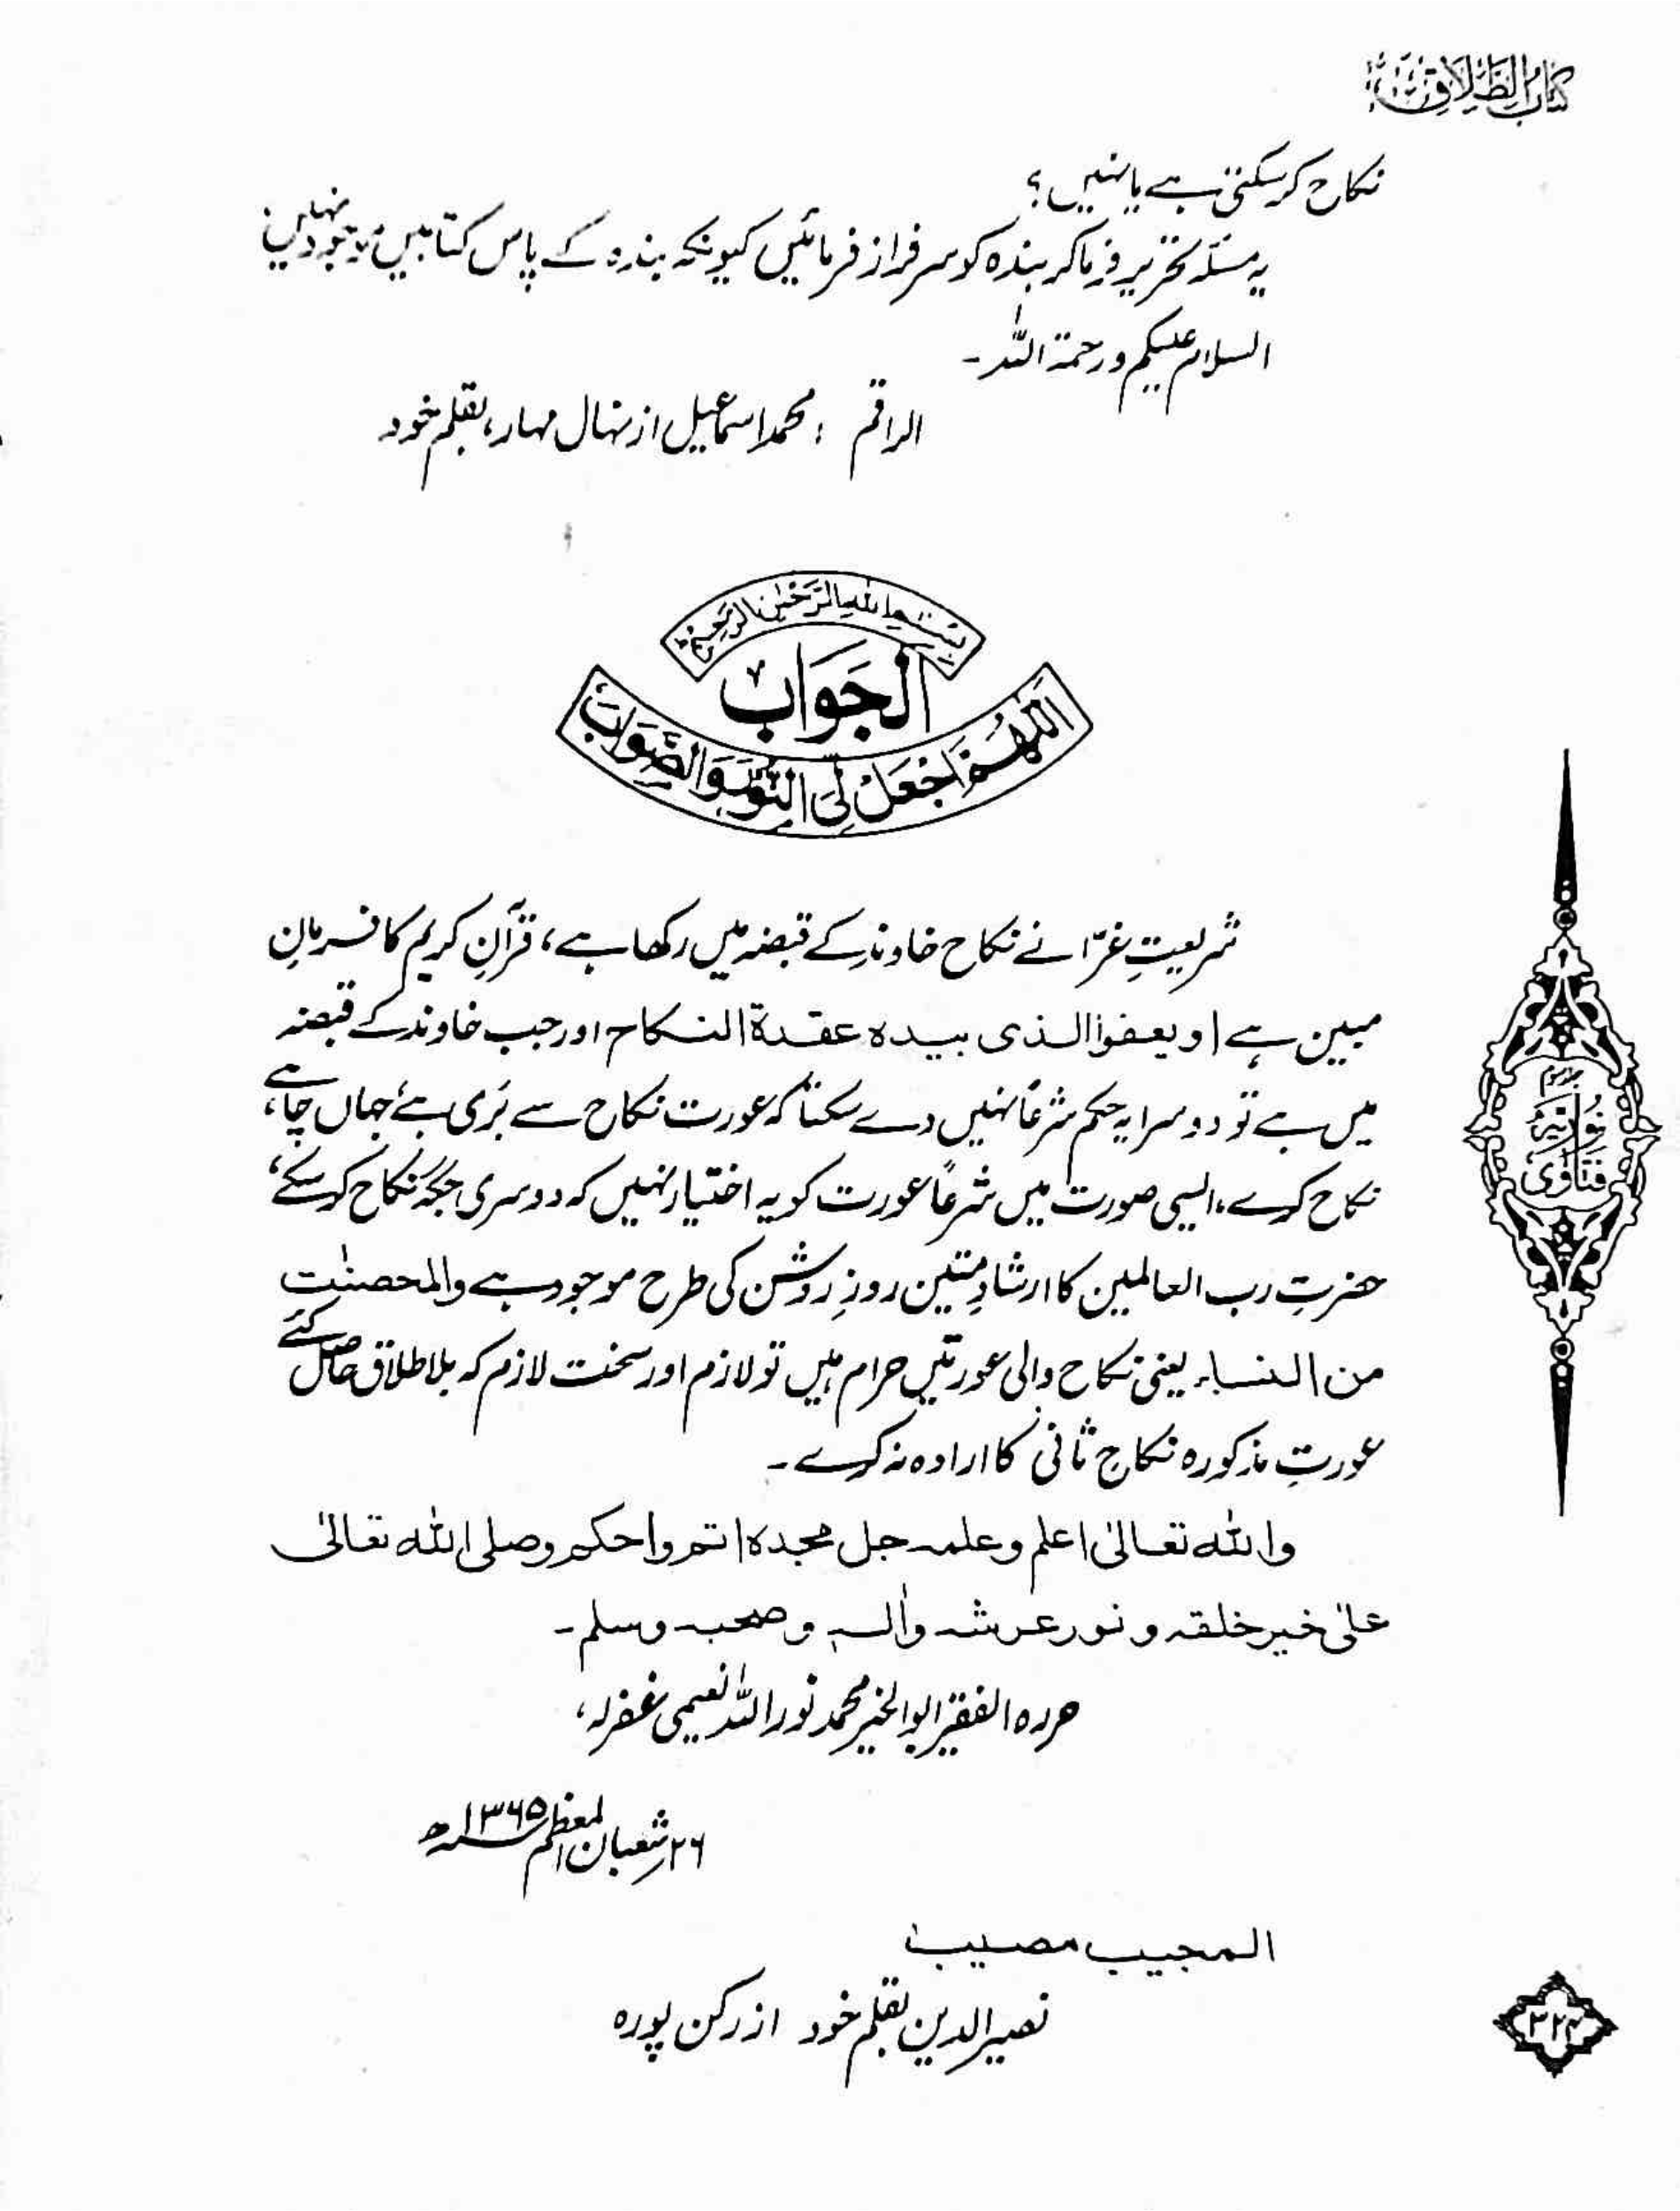 کتاب الطلاق
نکاح کرسکتی ہے یا نہیں؟
یہ مسئلہ تحریر فرماکر بندہ کو سرفراز فرمائیں کیونکہ بندہ کے پاس کتابیں موجود نہیں
السلام علیکم ورحمۃ اللہ۔
الراقم : محمد اسماعیل از نہال مہار، بقلم خود
بسم الله الرحمن الرحیم
الجواب
اللهم اجعل لی النور والصواب
شریعتِ غرّا نے نکاح خاوند کے قبضہ میں رکھا ہے، قرآنِ کریم کا فرمانِ
مبین ہے او یعفوا الذی بیده عقدة النکاح اور جب خاوند کے قبضہ
میں ہے تو دوسرا یہ حکم شرعًا نہیں دے سکتا کہ عورت نکاح سے بَری ہے جہاں چاہے،
نکاح کرے، ایسی صورت میں شرعًا عورت کو یہ اختیار نہیں کہ دوسری جگہ نکاح کرسکے،
حضرتِ رب العالمین کا ارشادِ متین روزِ روشن کی طرح موجود ہے والمحصنٰت
من النساء یعنی نکاح والی عورتیں حرام ہیں تو لازم اور سخت لازم کہ بلا طلاق حاصل کئے
عورتِ مذکورہ نکاحِ ثانی کا ارادہ نہ کرے۔
والله تعالیٰ اعلم وعلمہ جل مجدہ اتم واحکم وصلی الله تعالیٰ
علیٰ خیر خلقہ ونور عرشہ واٰلہ وصحبہ وسلم۔
حررہ الفقیر ابوالخیر محمد نور اللہ نعیمی غفرلہ،
۲۶ شعبان المعظم ۱۳۶۵ھ
المجیب مصیب
نصیر الدین بقلم خود از رکن پورہ
فتاوٰی نوریہ
۳۲۴